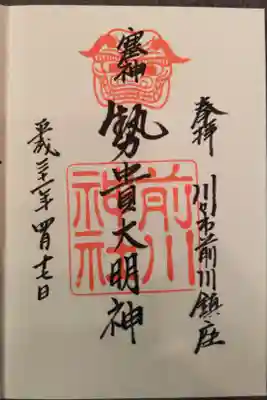 奉拝
川口市前川鎮座
塞神
勢貴大明神
前川神社
平成三十一年四月十七日